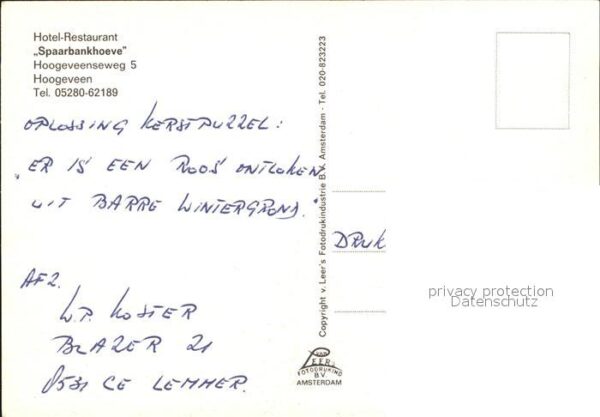 Hotel-Restaurant
„Spaarbankhoeve"
Hoogeveenseweg 5
Hoogeveen
Tel. 05280-62189
OPLOSSING KERSTPUZZEL:
"ER IS EEN ROOS ONTLOKEN
UIT BARRE WINTERGROND."
AFZ.
W.P. KOSTER
BLAZER 21
8531 CE LEMMER.
Copyright v. Leer's Fotodrukindustrie B.V. Amsterdam - Tel. 020-823223
DRUK
VAN
LEER
FOTODRUKIND
B.V.
AMSTERDAM
privacy protection
Datenschutz